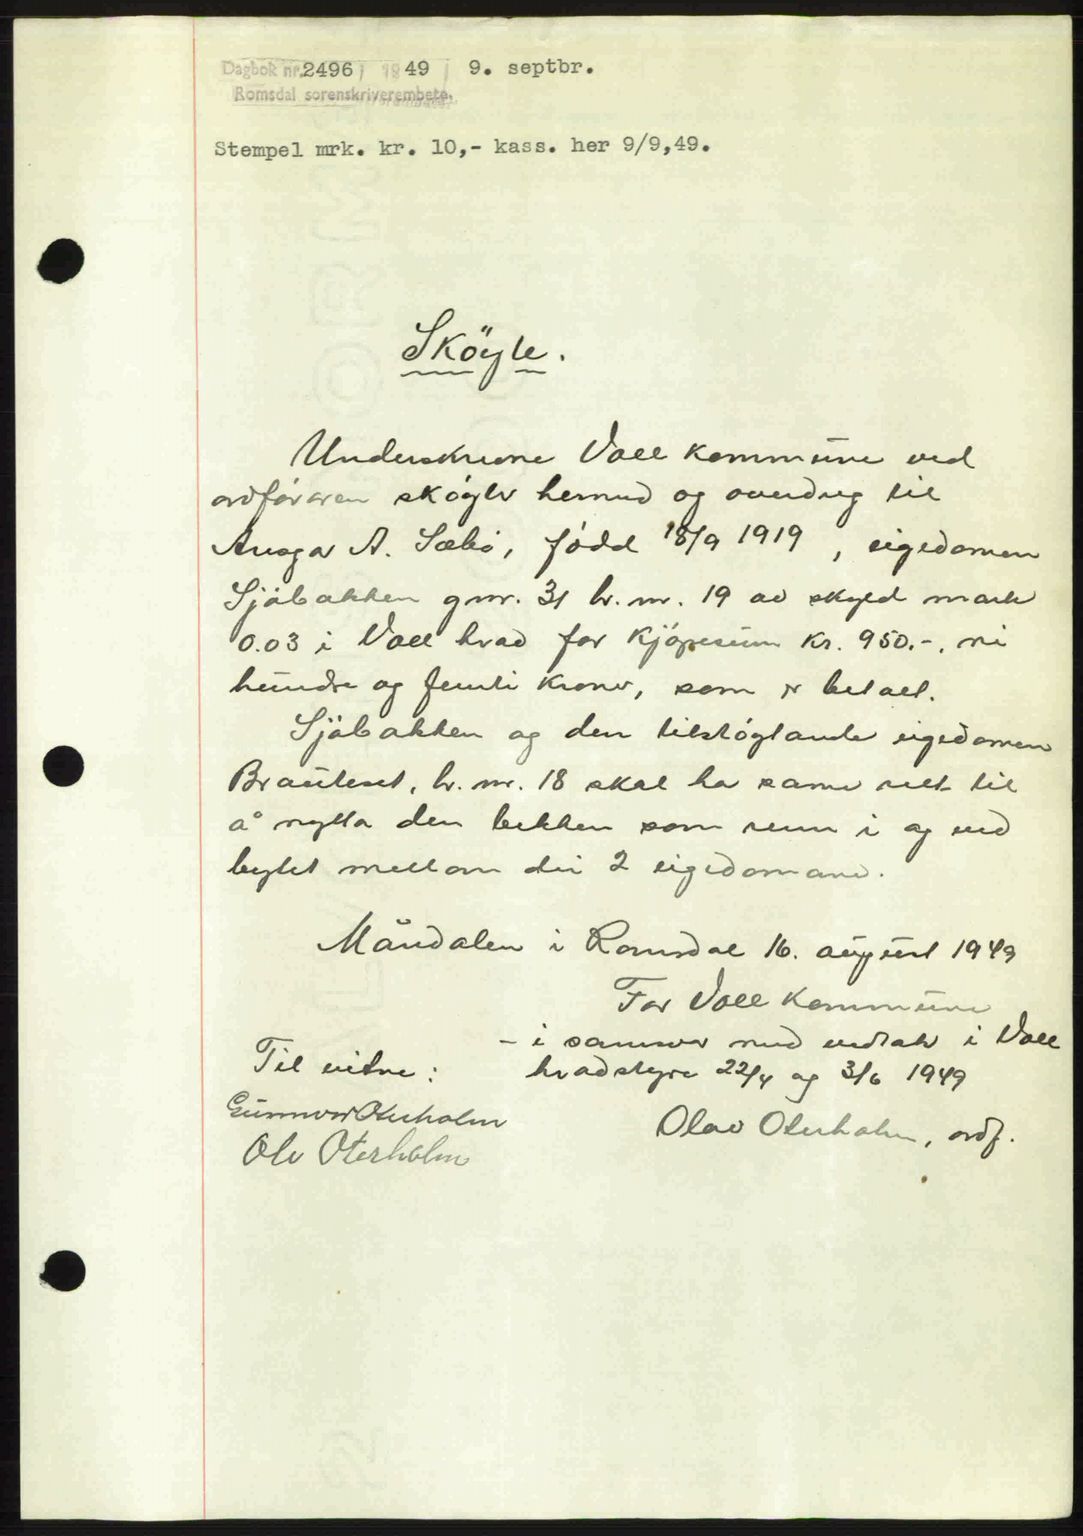 Dagbok nr. 2496 / 1949 / 9. septbr.
Romsdal sorenskriverembete.
Stempel mrk. kr. 10,- kass. her 9/9,49.
Sköyte.
Underskrevne Voll kommune ved
ordföraren sköyter hermed og overdreg til
A. Sæbö, född 18/9 1919, eigedomen
Sjöbakken gnr. 31 br. nr. 19 av skyld mark
0.03 i Voll hrad for kjöpesum kr. 950.-, ni
hundre og femti kroner, som er betalt.
Sjöbakken og den tilstöytande eigedomen
Brauteset, br. nr. 18 skal ha same rett til
å nytta den bekken som renn i og ved
bytet mellom dei 2 eigedomane.
Måndalen i Romsdal 16. august 1949
For Voll kommune
- i samsvar med vedtak i Voll
hradstyre 22/4 og 3/6 1949
Til vitne:
Gunnvor Oterholm
Olav Oterholm, ordf.
Ole Oterholm